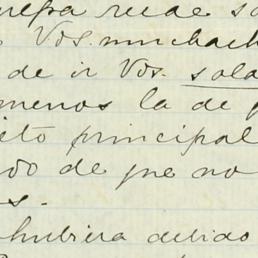 ruda so
Vds. muchach
de ir Vds. sola
menos la de p
eto principal
do de que no
s.
hubiera debido